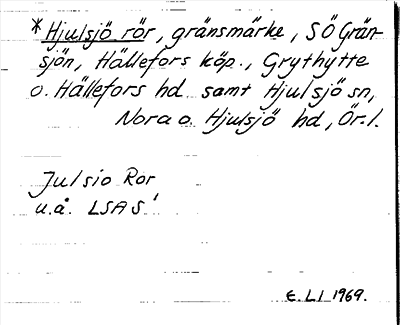 * Hjulsjö rör, gränsmärke, SÖ Grän-
sjön, Hällefors köp., Grythytte
o. Hällefors hd samt Hjulsjö sn,
Nora o. Hjulsjö hd, Ör. l.
Julsio Ror
u.å. LSA S'
E. LI 1969.